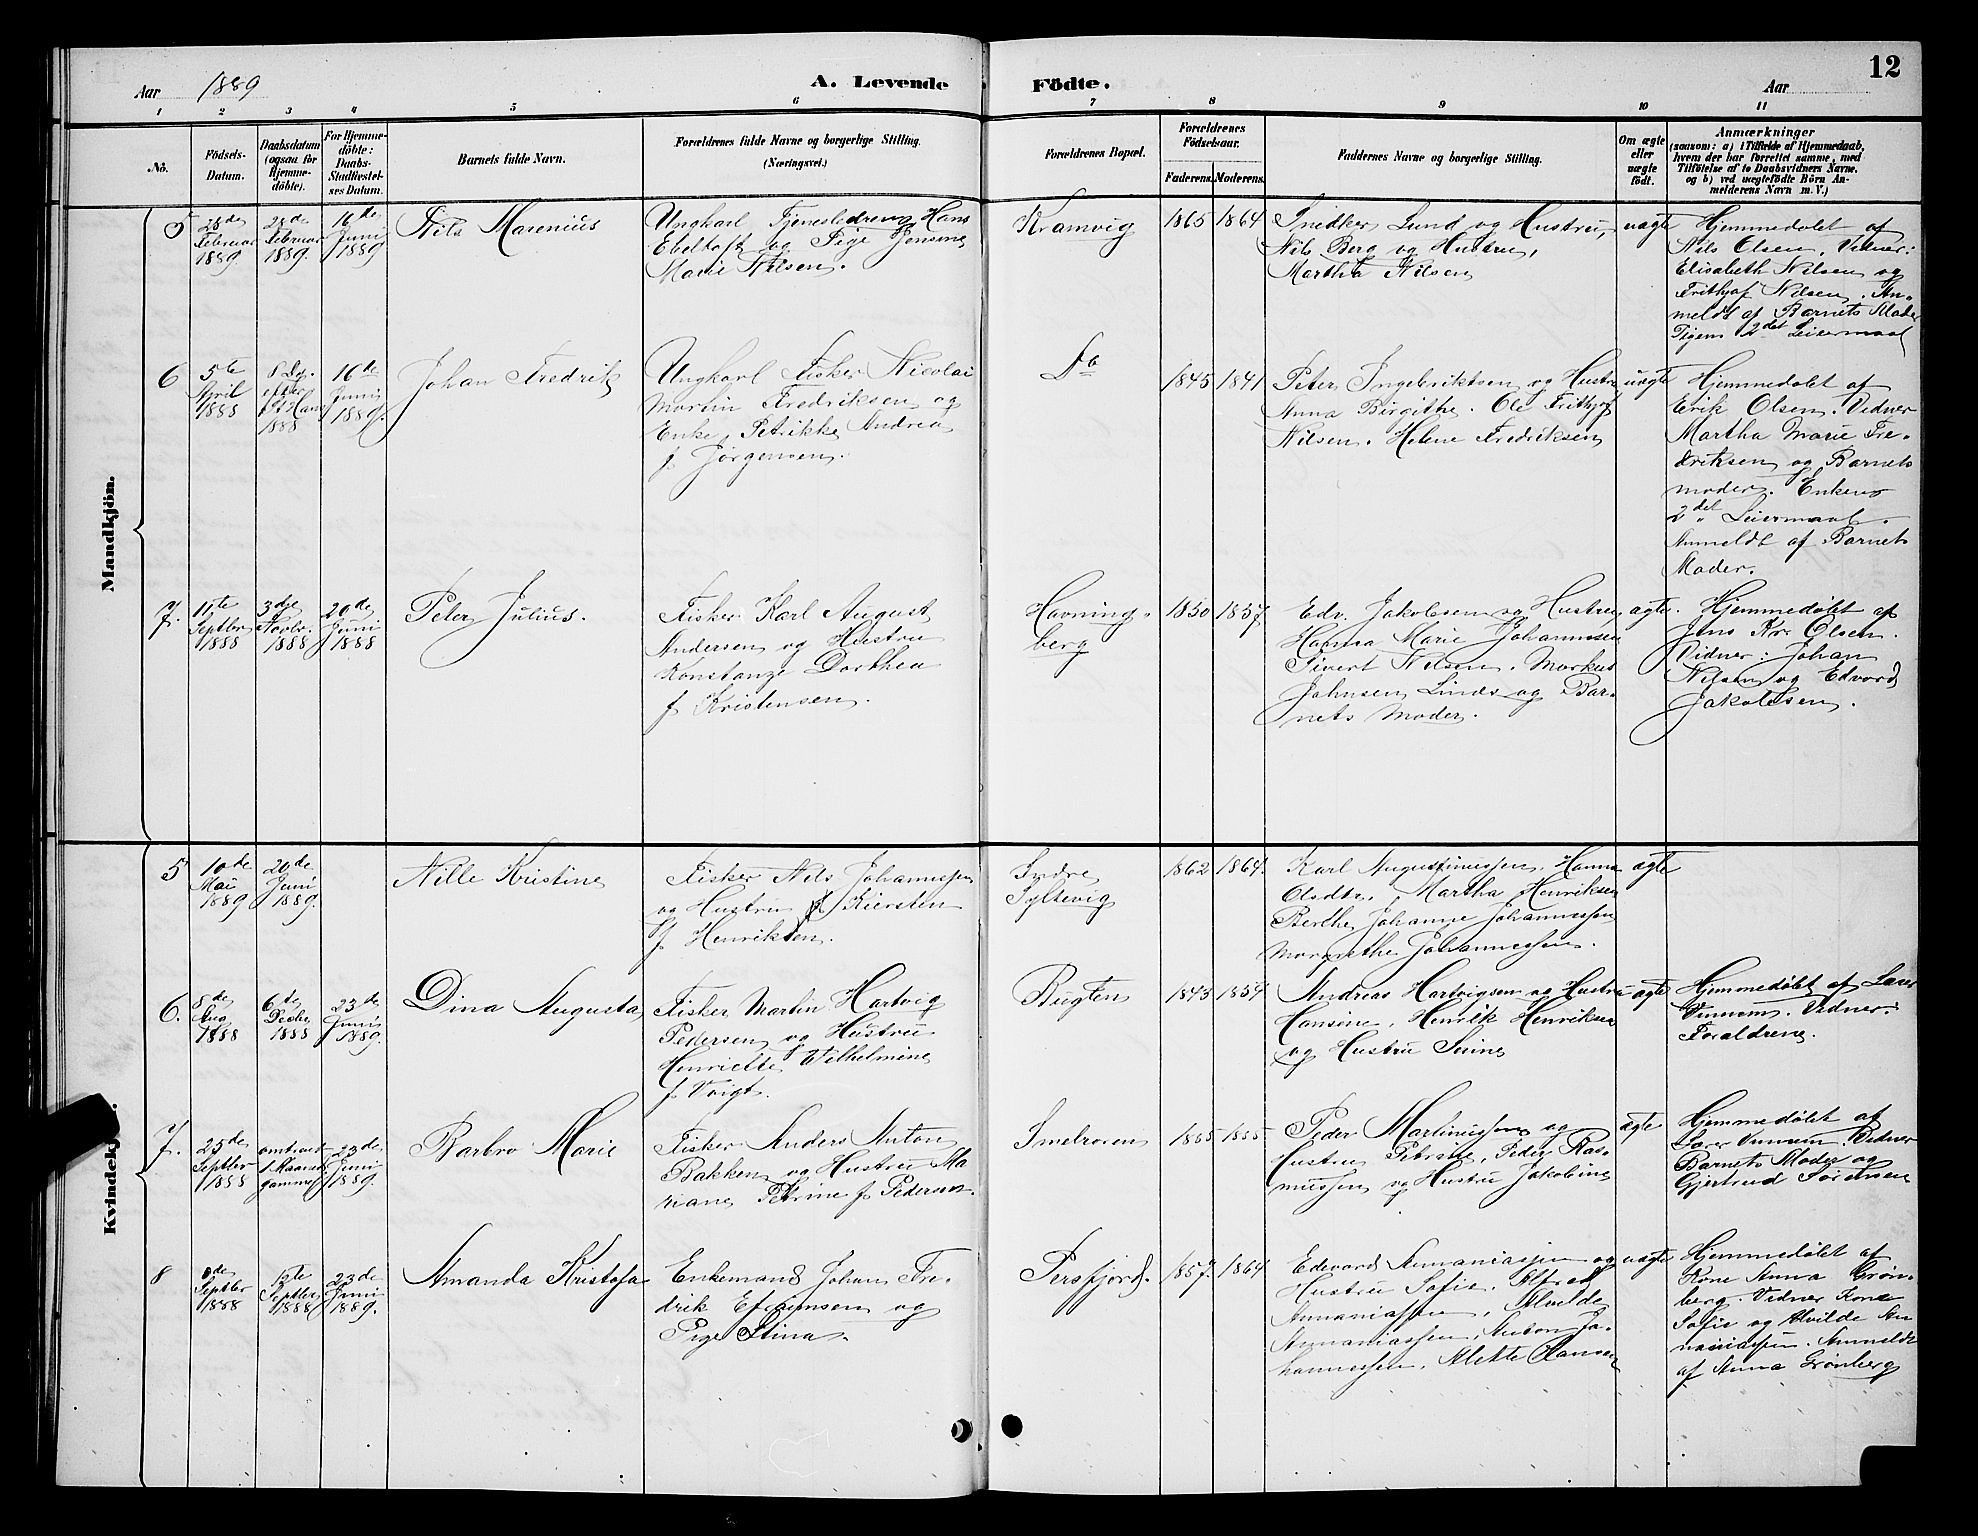 Aar 1889
A. Levende
Födte.
Aar
12
1 2 3 4 5 6 7 8 9 10 11
No.
Födsels-
Datum.
Daabsdatum
(ogsaa for
Hjemme-
döbte).
For Hjemme-
döbte:
Daabs-
Stadfæstel-
ses Datum.
Barnets fulde Navn.
Forældrenes fulde Navne og borgerlige Stilling.
(Næringsvei.)
Forældrenes Bopæl.
Forældrenes
Födselsaar.
Faderens. Moderens.
Faddernes Navne og borgerlige Stilling.
Om ægte
eller
uægte
födt.
Anmærkninger
(saasom: a) i Tilfælde af Hjemmedaab,
hvem der har forrettet samme, med
Tilföielse af to Daabsvidners Navne.
og b) ved uægtefödte Börn An-
melderens Navn m. V.)
Mandkjön.
5
28de
Februar
1889
28de
Februar
1889.
16de
Juni
1889
Nils Marenius
Ungkarl Tjenestedreng Hans
Ebeltoft og Pige Jensine
Marie Nilsen.
Kramvig
1865 1864
Snedker Lund og Hustru,
Nils Berg og Hustru,
Martha Nilsen
uægte
Hjemmedøbt af
Nils Olsen. Vidner:
Elisabeth Nilsen og
Frithjof Nilsen. An-
meldt af Barnets Moder
Pigens 2det Leiermaal
6
5te
April
1888
8 Dg.
efter
St Hans
1888
16de
Juni
1889.
Johan Fredrik
Ungkarl Fisker Nicolai
Martin Fredriksen og
Enke Petrikke Andrea
f Jørgensen.
Do
1845 1841
Peter Ingebriktsen og Hustru
Anna Birgithe. Ole Frithjof
Nilsen. Helene Fredriksen
uægte
Hjemmedøbt af
Erik Olsen. Vidner
Martha Marie Fre-
driksen og Barnets
moder. Enkens
2det Leiermaal.
Anmeldt af Barnets
Moder.
7.
11te
Septbr
1888
3dje
Novbr.
1888
20de
Juni
1888
Peter Julius.
Fisker Karl August
Andersen og Hustru
Konstanze Dorthea
f Kristensen.
Havning-
berg
1850 1857
Edv. Jakobsen og Hustru,
Hanna Marie Johannesen
Sivert Nilsen. Markus
Johnsen Linds og Bar-
nets Moder.
ægte.
Hjemmedøbt af
Jens Kr. Olsen.
Vidner: Johan
Nilsen og Edvard
Jakobsen.
Kvindekj
5
10de
Mai
1889
20de
Juni
1889.
Nille Kristine
Fisker Nils Johannessen
og Hustru Kiersten
f Henriksen.
Indre
Syltevig
1862 1864.
Karl Augustinussen, Hanna
Olsdtr, Martha Henriksen
Berthe Johanne Johannessen
Margrethe Johannessen.
ægte
6.
8de
Aug
1888
6de
Decbr
1888
23de
Juni
1889.
Dina Augusta
Fisker Martin Hartvig
Pedersen og Hustru
Henriette Wilhelmine
f Voigt.
Bugten
1843 1859
Andreas Hartvigsen og Hustru
Hansine, Henrik Henriksen
og Hustru
ægte
Hjemmedøbt af Lærer
Vinnem. Vidner:
Forældrene.
7.
25de
Septbr
1888
omtrent
1 Maaned
gammel
23de
Juni
1889.
Barbro Marie
Fisker Anders Anton
Bakken og Hustru Ma
riane Petrine f Pedersen.
Smelroren
1865 1865
Peder Martinussen og
Hustru Petrine, Peder Ras-
mussen og Hustru Jakobine
ægte
Hjemmedøbt af
Lærer Vinnem. Vidner
Barnets Moder og
Gjertrud Sørensen
8
Septbr
1888
12te
Septbr
1888
23de
Juni
1889.
Amanda Kristofa
Enkemand Johan Fre-
drik Efraimsen og
Pige Stina.
Persfjord.
1857. 1864
Edevard Annaniassen og
Hustru Sofie. Alfred
Annaniassen, Alvilde
Annaniassen, Anton Jo-
hannessen. Mette Hansen
uægte
Hjemmedøbt af
Kone Anna Grøn-
berg. Vidner Kone
Sofie og Alvilde An
naniassen. Anmeldt
af Anna Grønberg